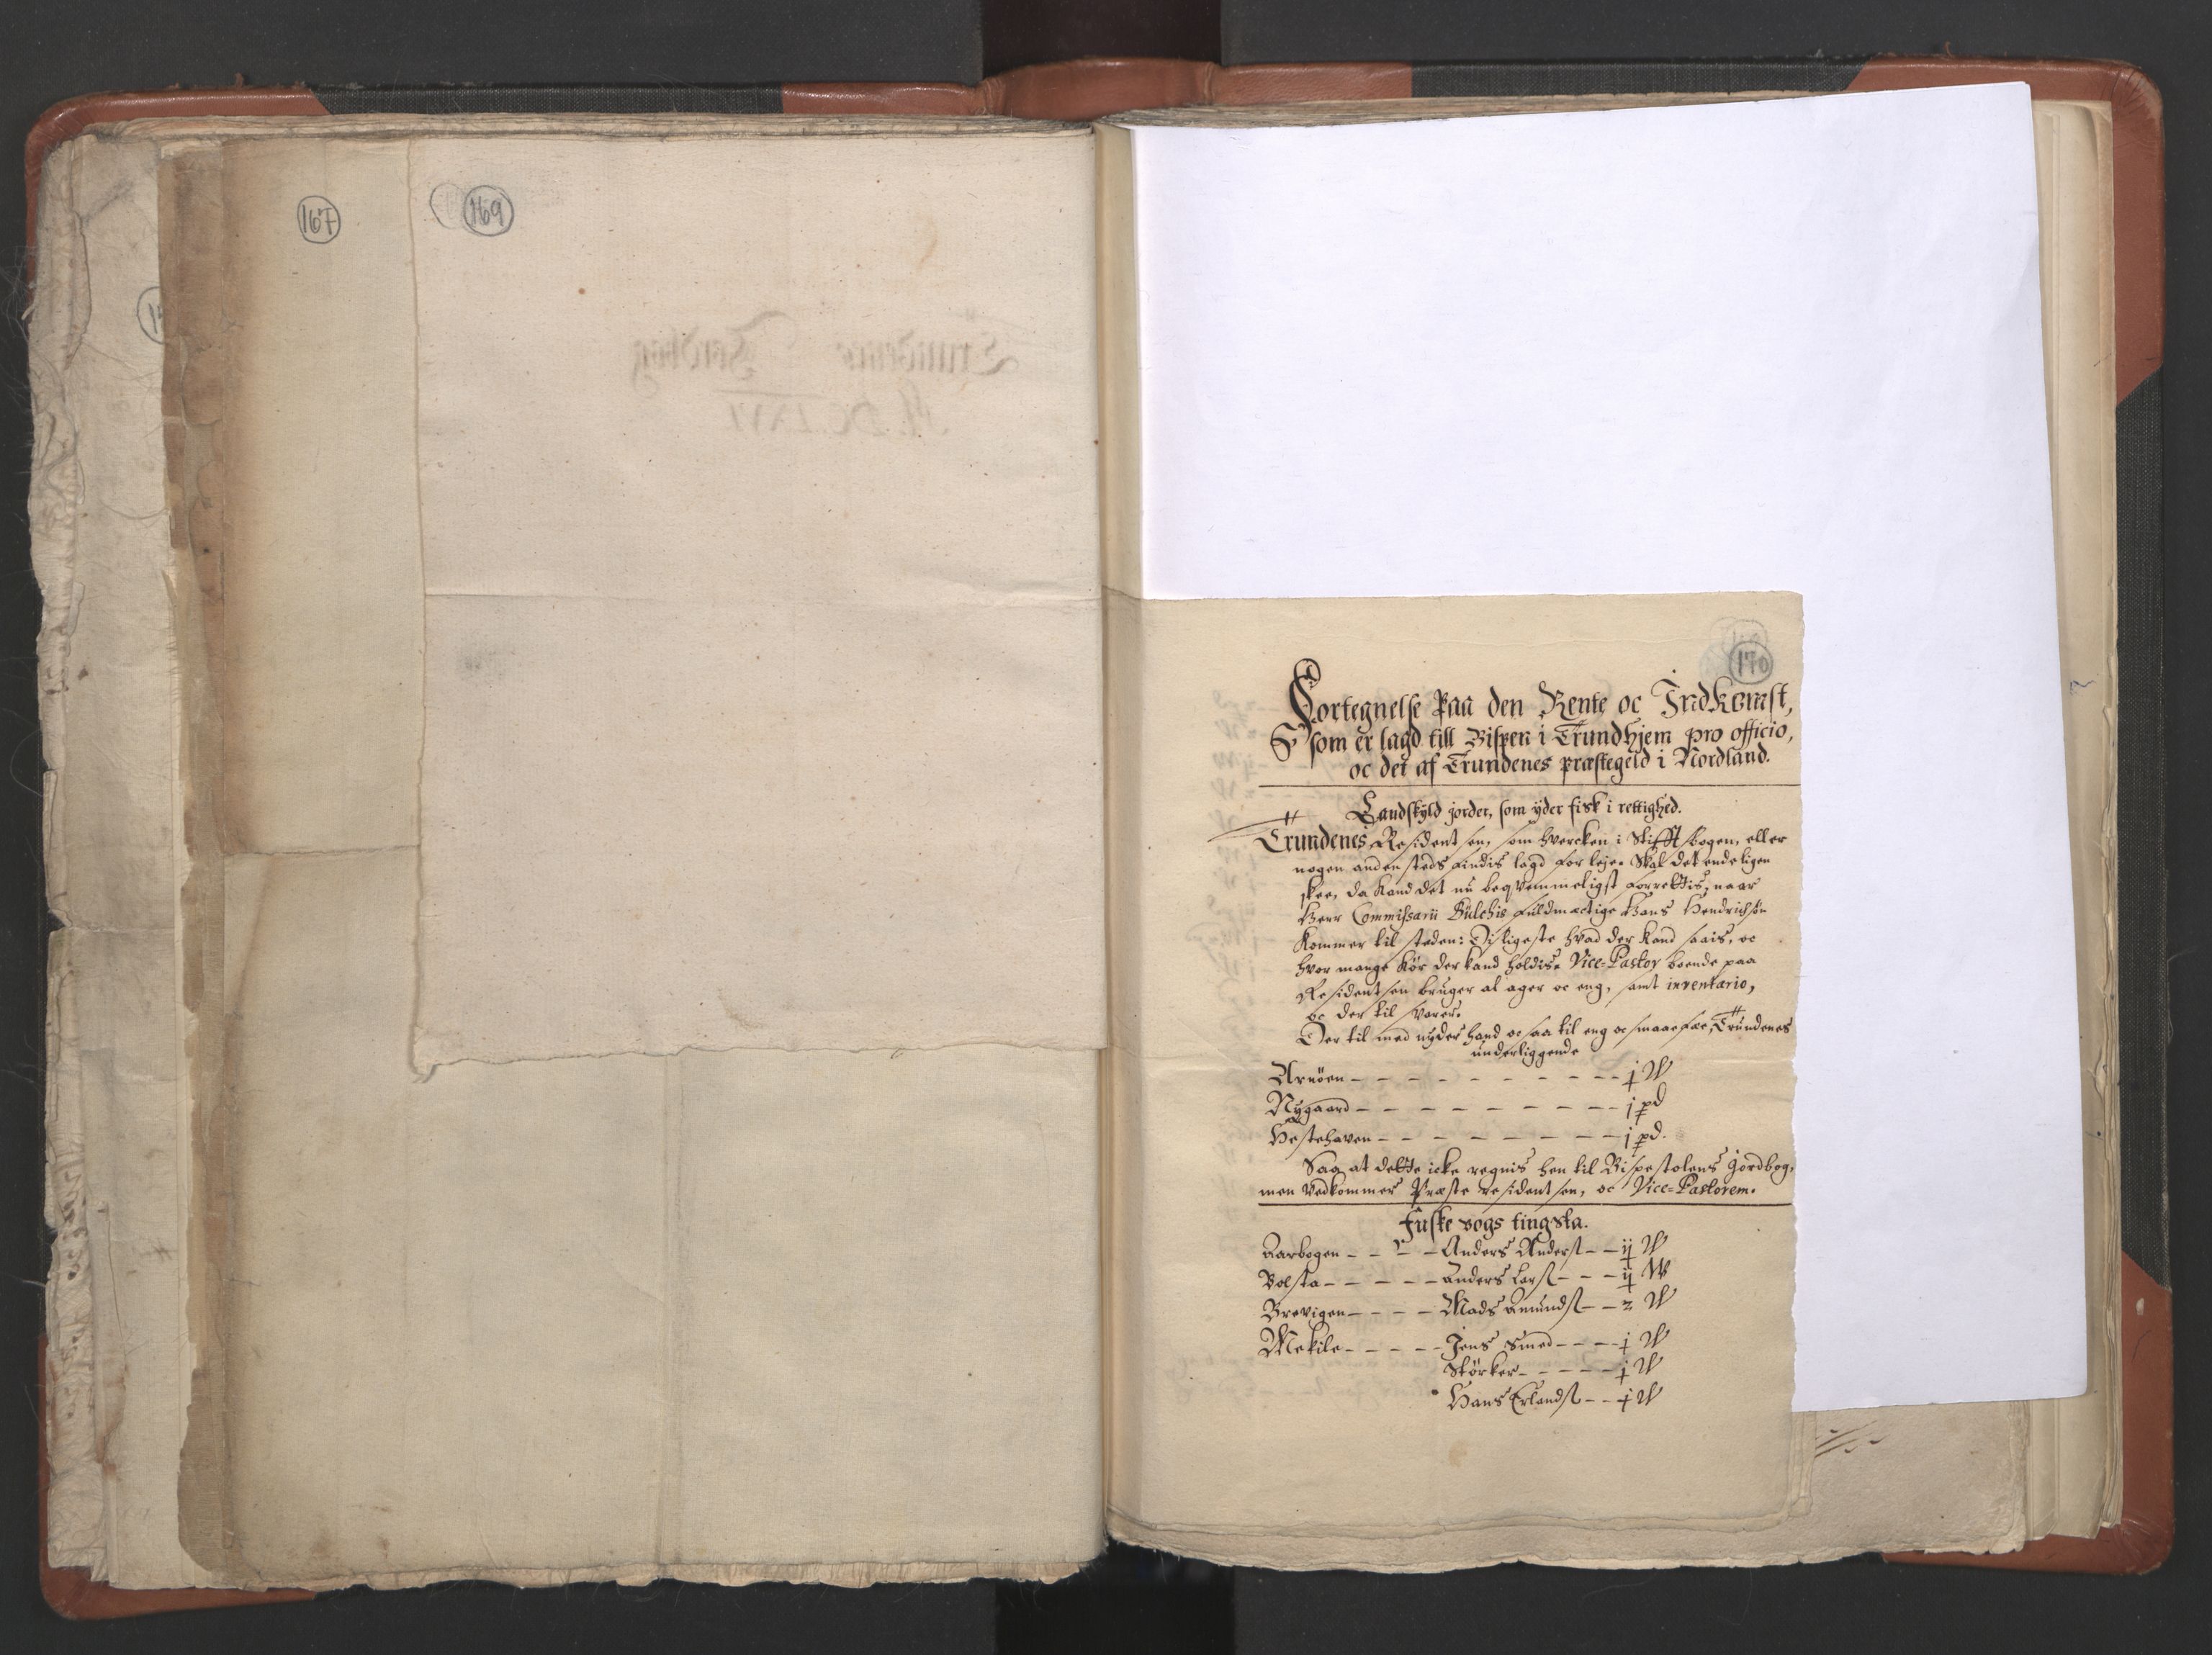 167
169
170
Fortegnelse Paa den Rente oc Indkomst,
som er lagd till Bispen i Trundhjem pro officio,
oc det af Trundenes præstegeld i Nordland.
Landskyld jorder, som yder fisk i rettighed.
Trundenes Residentsen, som hvercken i Stifftsbogen, eller
nogen anden steds findis lagd for leje. Skal det endeligen
skee, da kand det nu beqvemmeligst forrettis, naar
Herr Commissarii Bülchis fuldmectige Hans Hendrichsøn
kommer til steden: Disligeste hvad der kand saais, oc
hvor mange kør der kand holdis. Vice-Pastor boende paa
Residentsen bruger al ager oc eng, samt inventario,
oc der til svarer.
Der til med nyder hand oc saa til eng oc smaae fæe, Trundenes
underliggende
Arnöen - - - - - - - - - - j W
Nygaard - - - - - - - - - j pd
Hestehaven - - - - - - - - - j pd.
Saa at dette icke regnis hen til Bispestolens Jordbog,
men vedkommer Præste residentsen, oc Vice-Pastorem.
Fuske vogs tingsta.
Aarbogen - - - - Anders Anders - - ij W
Bolsta - - - - - Anders Lars - - - ij W
Brevigen - - - - Mads Amunds - - 2 W
Mekile - - - - - Jens Smed - - - - j W
Störker - - - - - j W
Hans Erlands - - j W